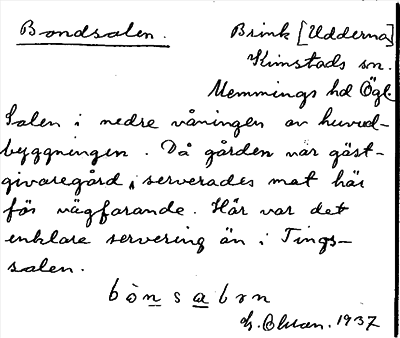 Bondsalen. Brink [Udderna]
Kimstads sn.
Memmings hd Ögl.
Salen i nedre våningen av huvud-
byggningen. Då gården var gäst-
givaregård, serverades mat här
för vägfarande. Här var det
enklare servering än i Tings-
salen.
bònsabən
1937